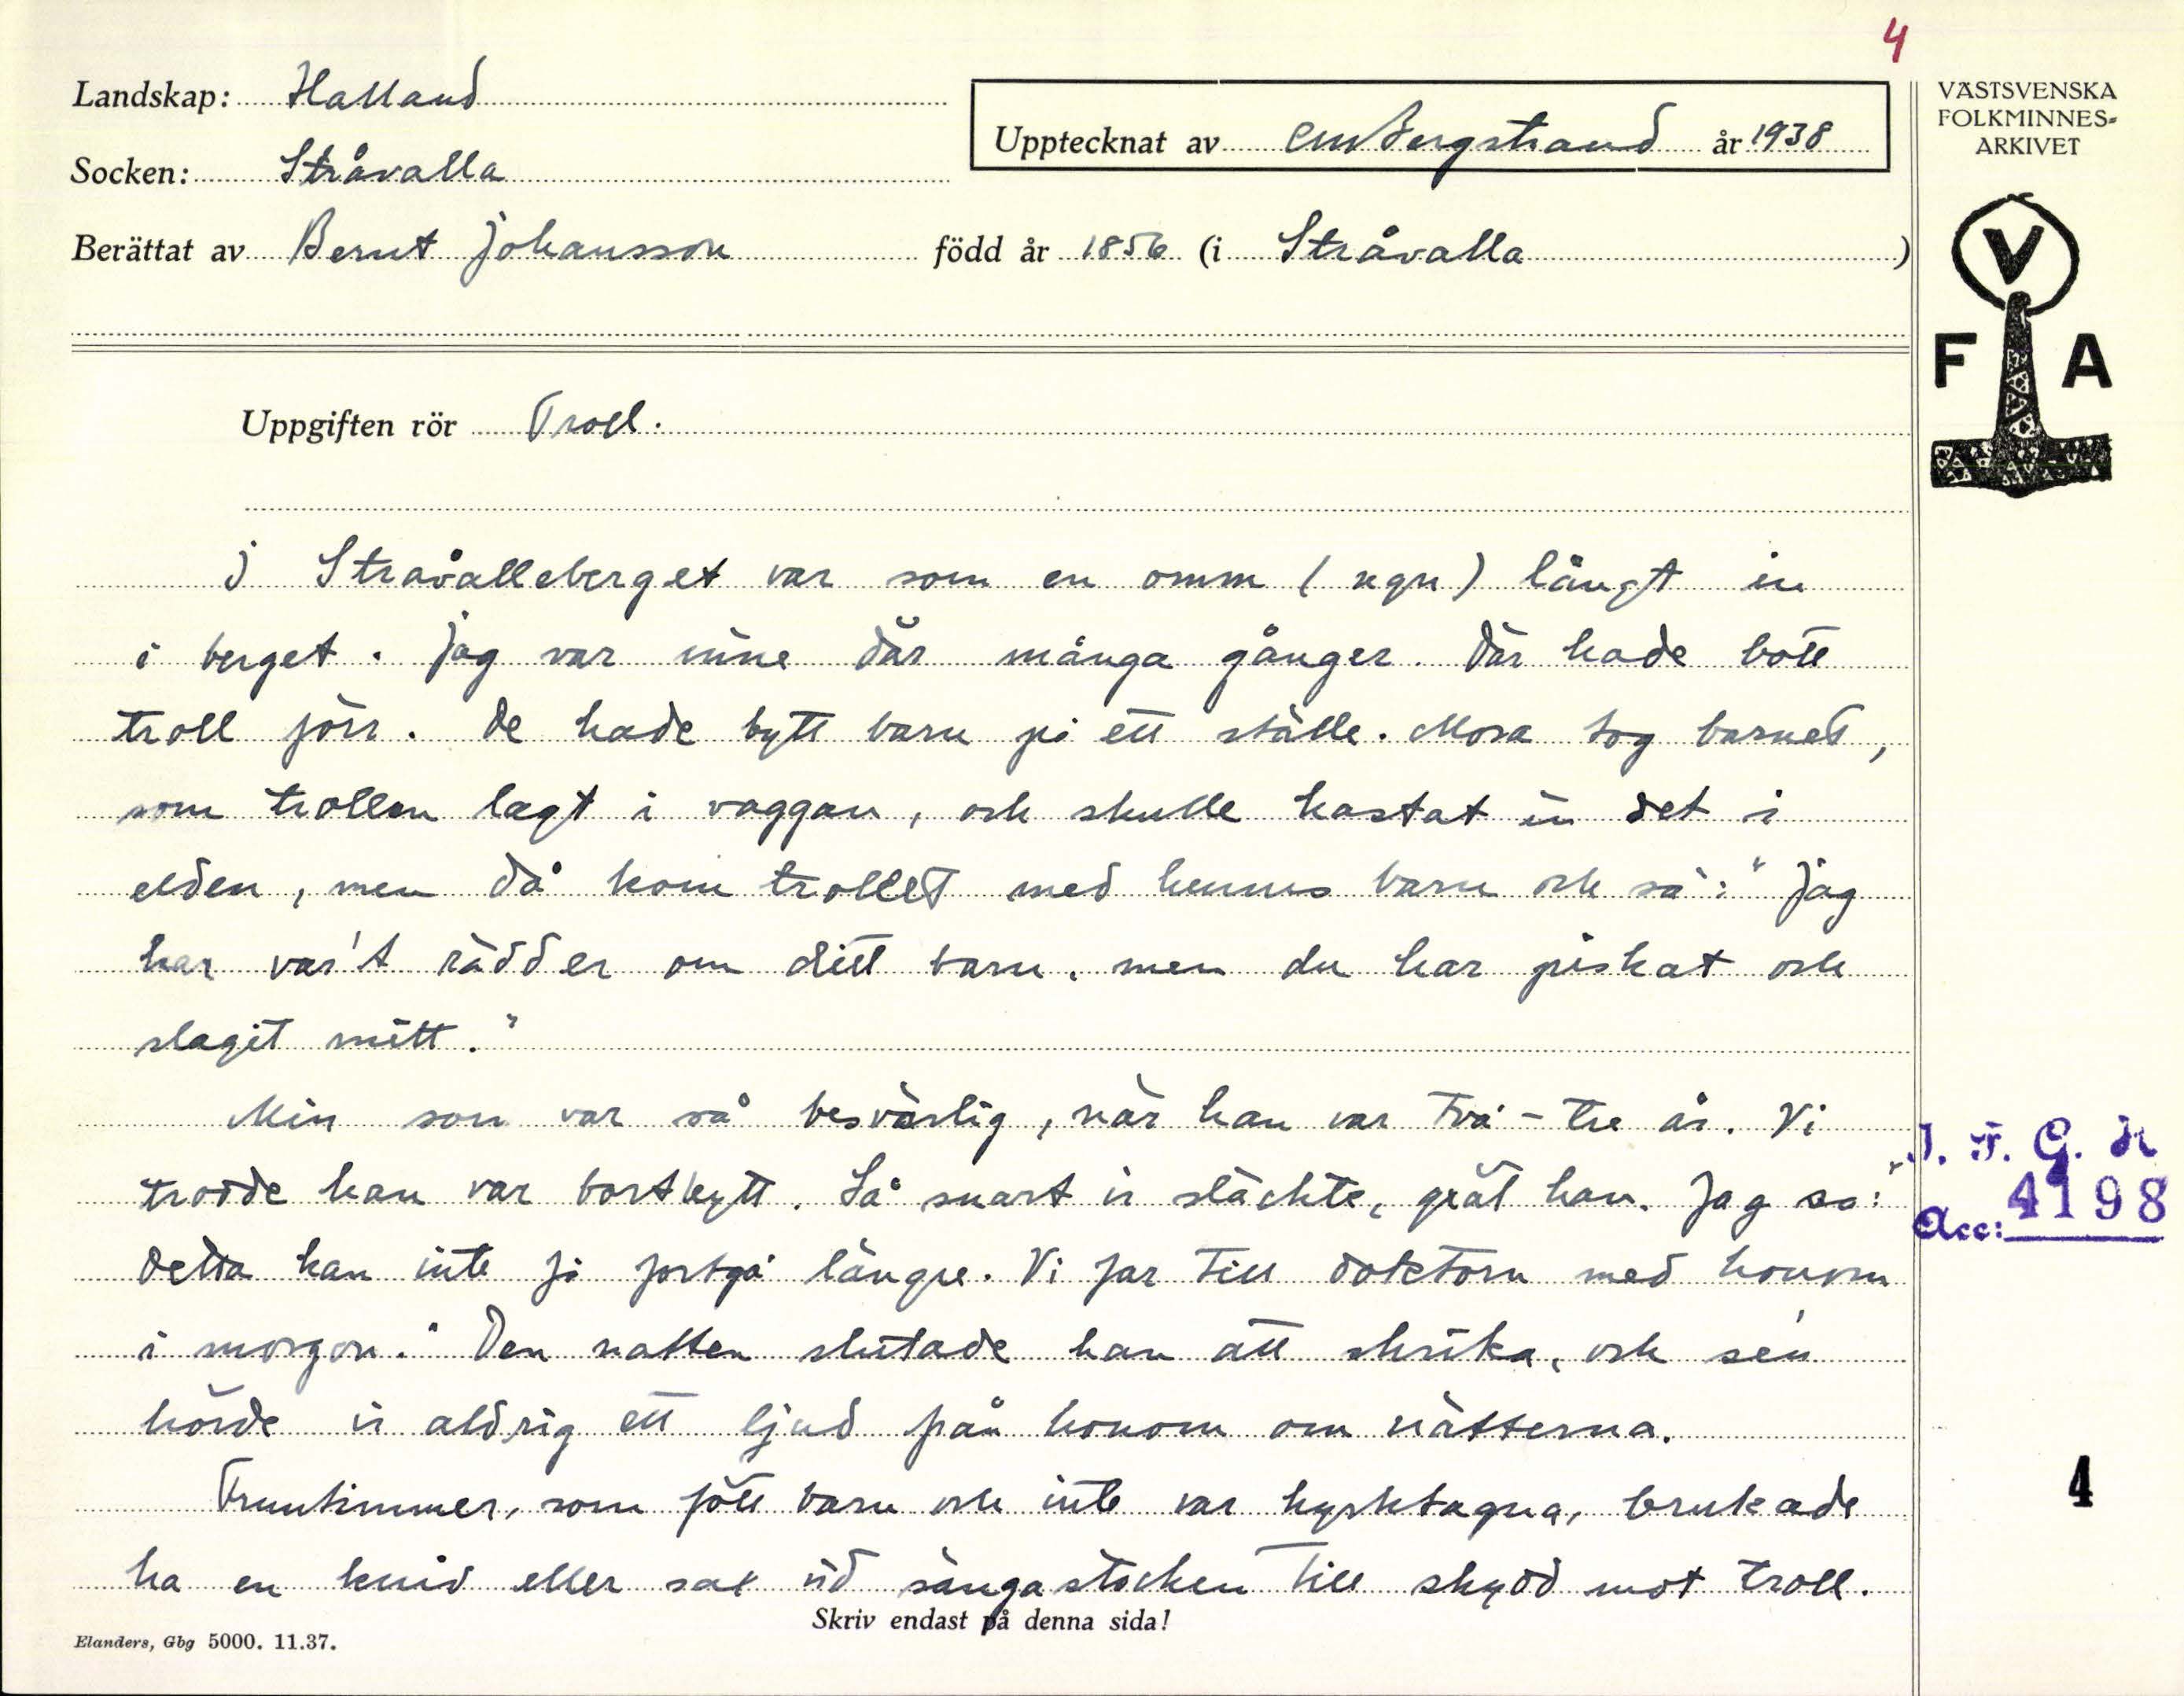 4
Landskap: Halland
Upptecknat av CM Bergstrand år 1938
Socken: Stråvalla
Berättat av Bernt Johansson född år 1856 (i Stråvalla )
Uppgiften rör Troll.
I Stråvalleberget var som en omm (ugn) långt in
i berget. Jag var inne där många gånger. Där hade bott
troll förr. De hade bytt barn på ett ställe. Mora tog barnet,
som trollen lagt i vaggan, och skulle kastat in det i
elden, men då kom trollet med hennes barn och sa: "Jag
har vari't rädder om ditt barn, men du har piskat och
slagit mitt."
Min son var så besvärlig, när han var två-tre år. Vi
trodde han var bortbytt. Så snart vi släckte, grät han. Jag sa: "
Detta kan inte få fortgå längre. Vi far till doktorn med honom
i morgon." Den natten slutade han att skrika, och sen
hörde vi aldrig ett ljud från honom om nätterna.
Fruntimmer, som fött barn och inte var kyrktagna, brukade
ha en kniv eller sax vid sängastocken till skydd mot troll.
Skriv endast på denna sida!
Elanders, Gbg 5000. 11.37.
VÄSTSVENSKA
FOLKMINNES-
ARKIVET
V
F A
I. F. G. H
Acc: 4198
4